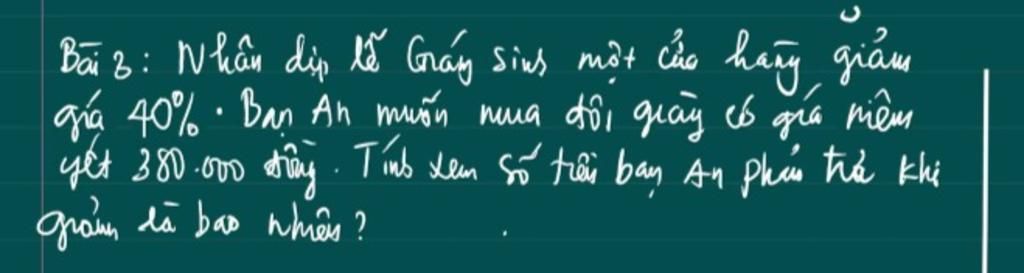 Bài 3: Nhân dịp lễ Giáng sinh một cửa hàng giảm
giá 40%. Bạn An muốn mua đôi giày có giá niêm
yết 380.000 đồng. Tính xem số tiền bạn An phải trả khi
giảm là bao nhiêu?